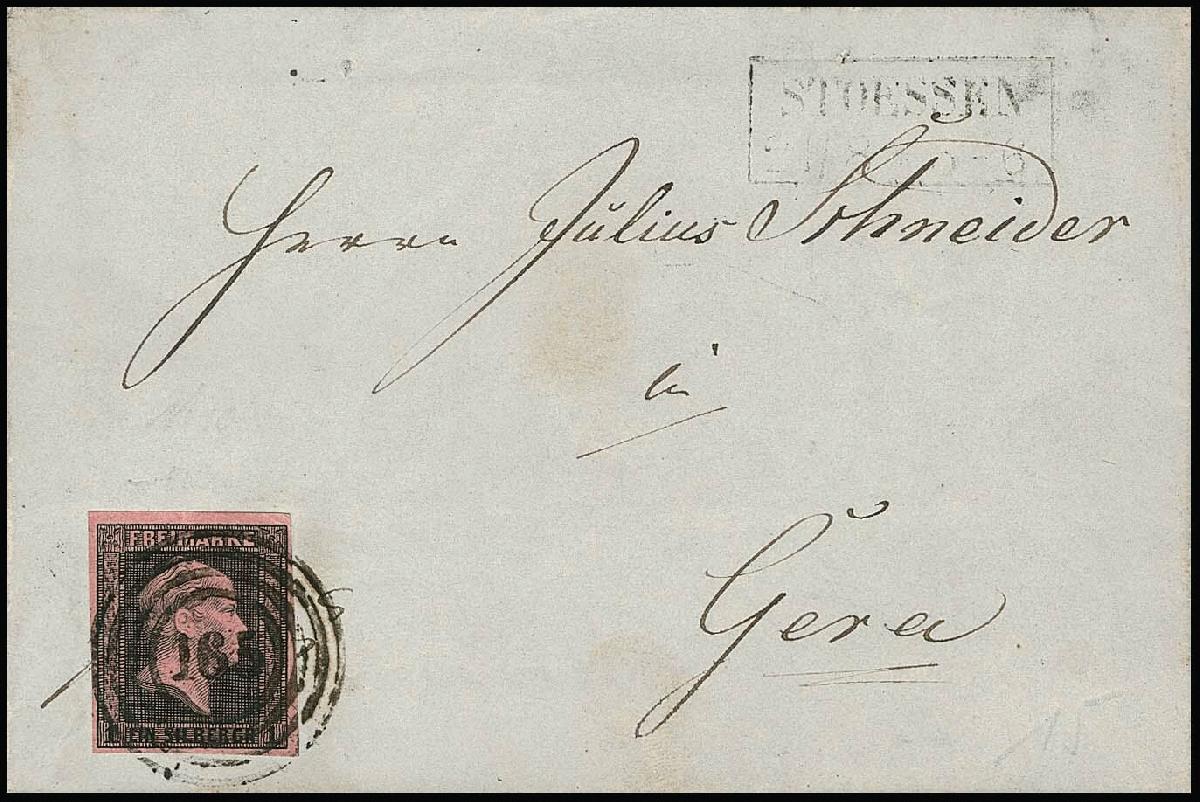 STOESSEN
Herrn Julius Schneider
in
Gera
FREIMARKE
1 EIN SILBERGR. 1
15